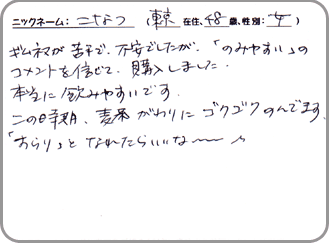 ニックネーム： こなつ （東京 在住、48 歳、性別： 女 ）
ギムネマが苦手で、不安でしたが、「のみやすい」の
コメントを信じて、購入しました。
本当に飲みやすいです。
この時期、麦茶がわりにゴクゴクのんでます。
「すらり」となれたらいいな〜〜